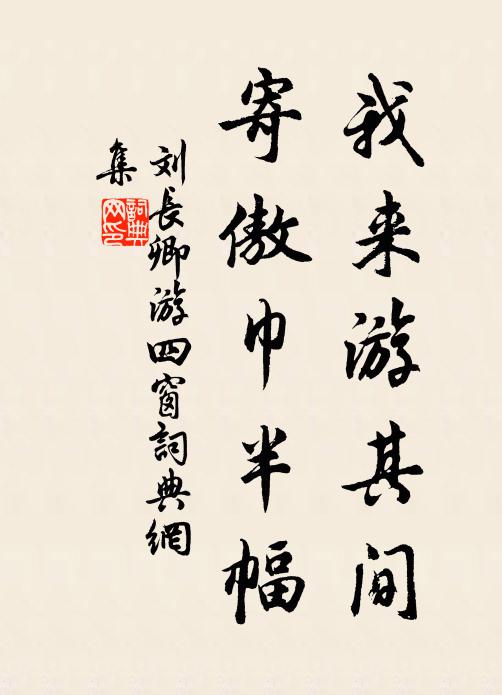 我来游其间
寄傲巾半幅
刘長卿游四窗詞典網
集
詞典網印